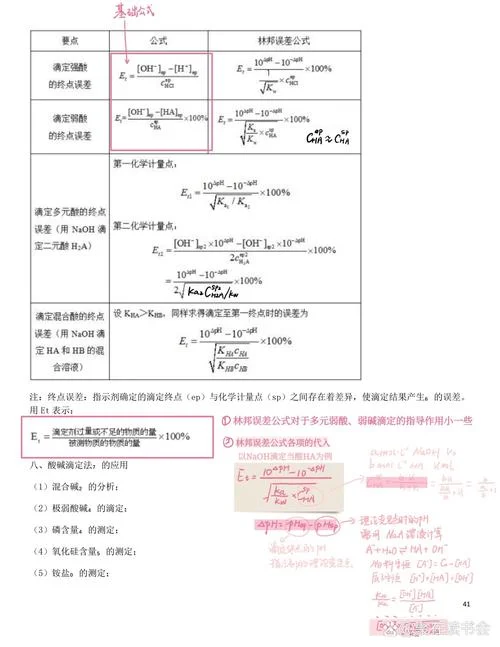 基础公式
要点 公式 林邦误差公式
滴定强酸
的终点误差
E_t = [OH⁻]_ep−[H⁺]_ep / c_HCl^ep ×100%
E_t = 10^ΔpH−10^−ΔpH / √(1/K_w) c_HCl^ep ×100%
滴定弱酸
的终点误差
E_t= [OH⁻]_ep−[HA]_ep / c_HA^ep ×100%
E_t = 10^ΔpH−10^−ΔpH / √(K_a/K_w × c_HA^ep) ×100%
C_HA^ep≈C_HA^sp
滴定多元酸的终点
误差(用 NaOH 滴
定二元酸 H₂A)
第一化学计量点:
E_t1 = 10^ΔpH−10^−ΔpH / √(K_a1 / K_a2) ×100%
第二化学计量点:
E_t2 = [OH⁻]_sp2×10^ΔpH−[OH⁻]_sp2×10^−ΔpH / 2c_H₂A^sp2 ×100%
= 10^ΔpH−10^−ΔpH / 2√(Ka₂C_H2A^sp2/Kw) ×100%
滴定混合酸的终点
误差(用 NaOH 滴
定 HA 和 HB 的混
合溶液)
设 K_HA>K_HB,同样求得滴定至第一终点时的误差为
E_t = 10^ΔpH−10^−ΔpH / √(K_HA c_HA / K_HB c_HB) ×100%
注:终点误差:指示剂确定的滴定终点(ep)与化学计量点(sp)之间存在着差异,使滴定结果产生。的误差。
用 Et 表示:
E_t = 滴定剂过量或不足的物质的量 / 被测物质的物质的量 ×100%
①林邦误差公式对于多元弱酸、弱碱滴定的指导作用小一些
②林邦误差公式各项的代入
以NaOH滴定弱酸HA为例
Et = 10^ΔpH−10^−ΔpH / √(Ka/Kw × C_HA^sp)
ΔpH=pHep−pHsp
理论变色时的pH
需用 NaA 溶液计算
A⁻+H₂O⇌HA+OH⁻
[A⁻]=C−[HA]
[HA]=[OH⁻]
Kw/Ka = [OH⁻][HA]/[A⁻]
八、酸碱滴定法。的应用
(1)混合碱。的分析;
(2)极弱酸碱。的滴定;
(3)磷含量。的测定;
(4)氧化硅含量。的测定;
(5)铵盐。的测定;
41